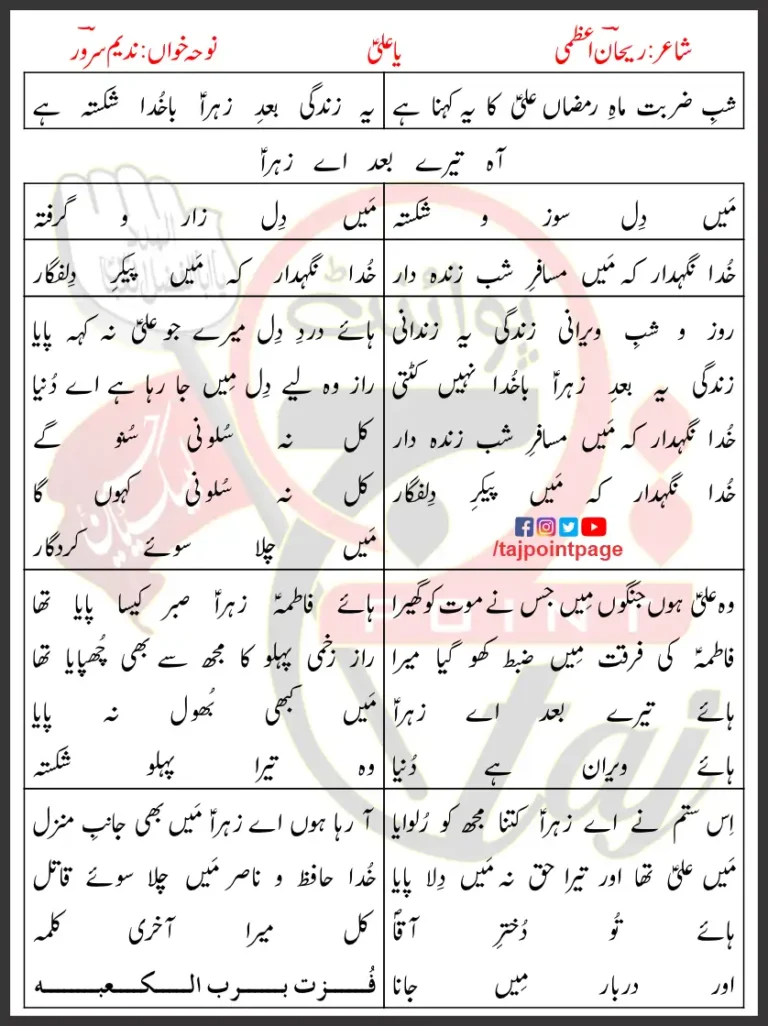 شاعر: ریحان اعظمی یا علیؑ نوحہ خواں: ندیم سرور
شبِ ضربت ماہِ رمضاں علیؑ کا یہ کہنا ہے یہ زندگی بعدِ زہراؑ باخُدا شکستہ ہے
آہ تیرے بعد اے زہراؑ
مَیں دِل سوز و شکستہ مَیں دِل زار و گرفتہ
خُدا نگہدار کہ مَیں مسافرِ شب زندہ دار خُدا نگہدار کہ مَیں پیکرِ دِلفگار
روز و شبِ ویرانی زندگی یہ زندانی
زندگی یہ بعدِ زہراؑ باخُدا نہیں کٹتی
خُدا نگہدار کہ مَیں مسافرِ شب زندہ دار
خُدا نگہدار کہ مَیں پیکرِ دِلفگار
/tajpointpage
ہائے دردِ دِل میرے جو علیؑ نہ کہہ پایا
راز وہ لیے دِل مِیں جا رہا ہے اے دُنیا
کل نہ سُلونی سُنو گے
کل نہ سُلونی کہوں گا
مَیں چلا سوئے کردگار
وہ علیؑ ہوں جنگوں مِیں جس نے موت کو گھیرا
فاطمہؑ کی فرقت مِیں ضبط کھو گیا میرا
ہائے تیرے بعد اے زہراؑ
ہائے ویران ہے دُنیا
ہائے فاطمہؑ زہراؑ صبر کیسا پایا تھا
راز زخمی پہلو کا مجھ سے بھی چُھپایا تھا
مَیں کبھی بُھول نہ پایا
وہ تیرا پہلو شکستہ
اِس ستم نے اے زہراؑ کتنا مجھ کو رُلوایا
مَیں علیؑ تھا اور تیرا حق نہ مَیں دِلا پایا
ہائے تُو دُخترِ آقاؐ
اور دربار مِیں جانا
آ رہا ہوں اے زہراؑ مَیں بھی جانبِ منزل
خُدا حافظ و ناصر مَیں چلا سوئے قاتل
کل میرا آخری کلمہ
فُزت برب الکعبہ
پوائنٹ
POINT
Taj